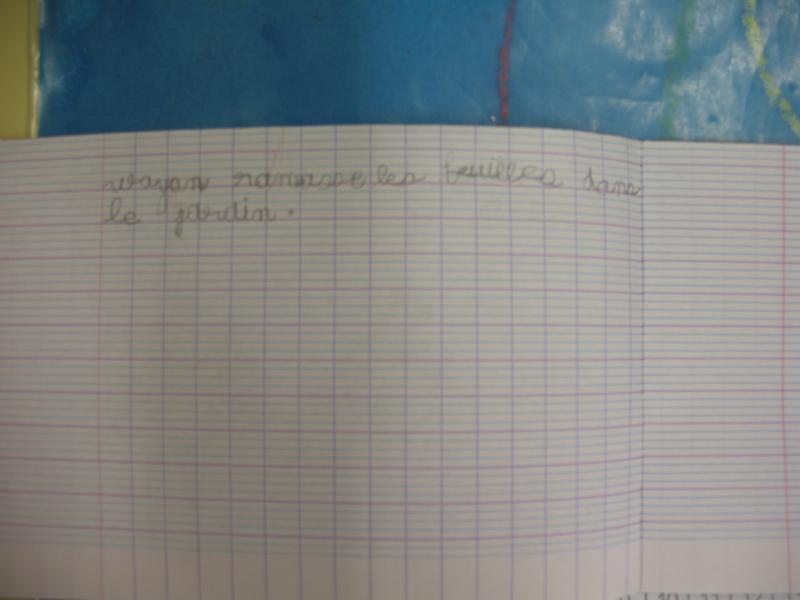 wayan ramasse les feuilles dans
le jardin.